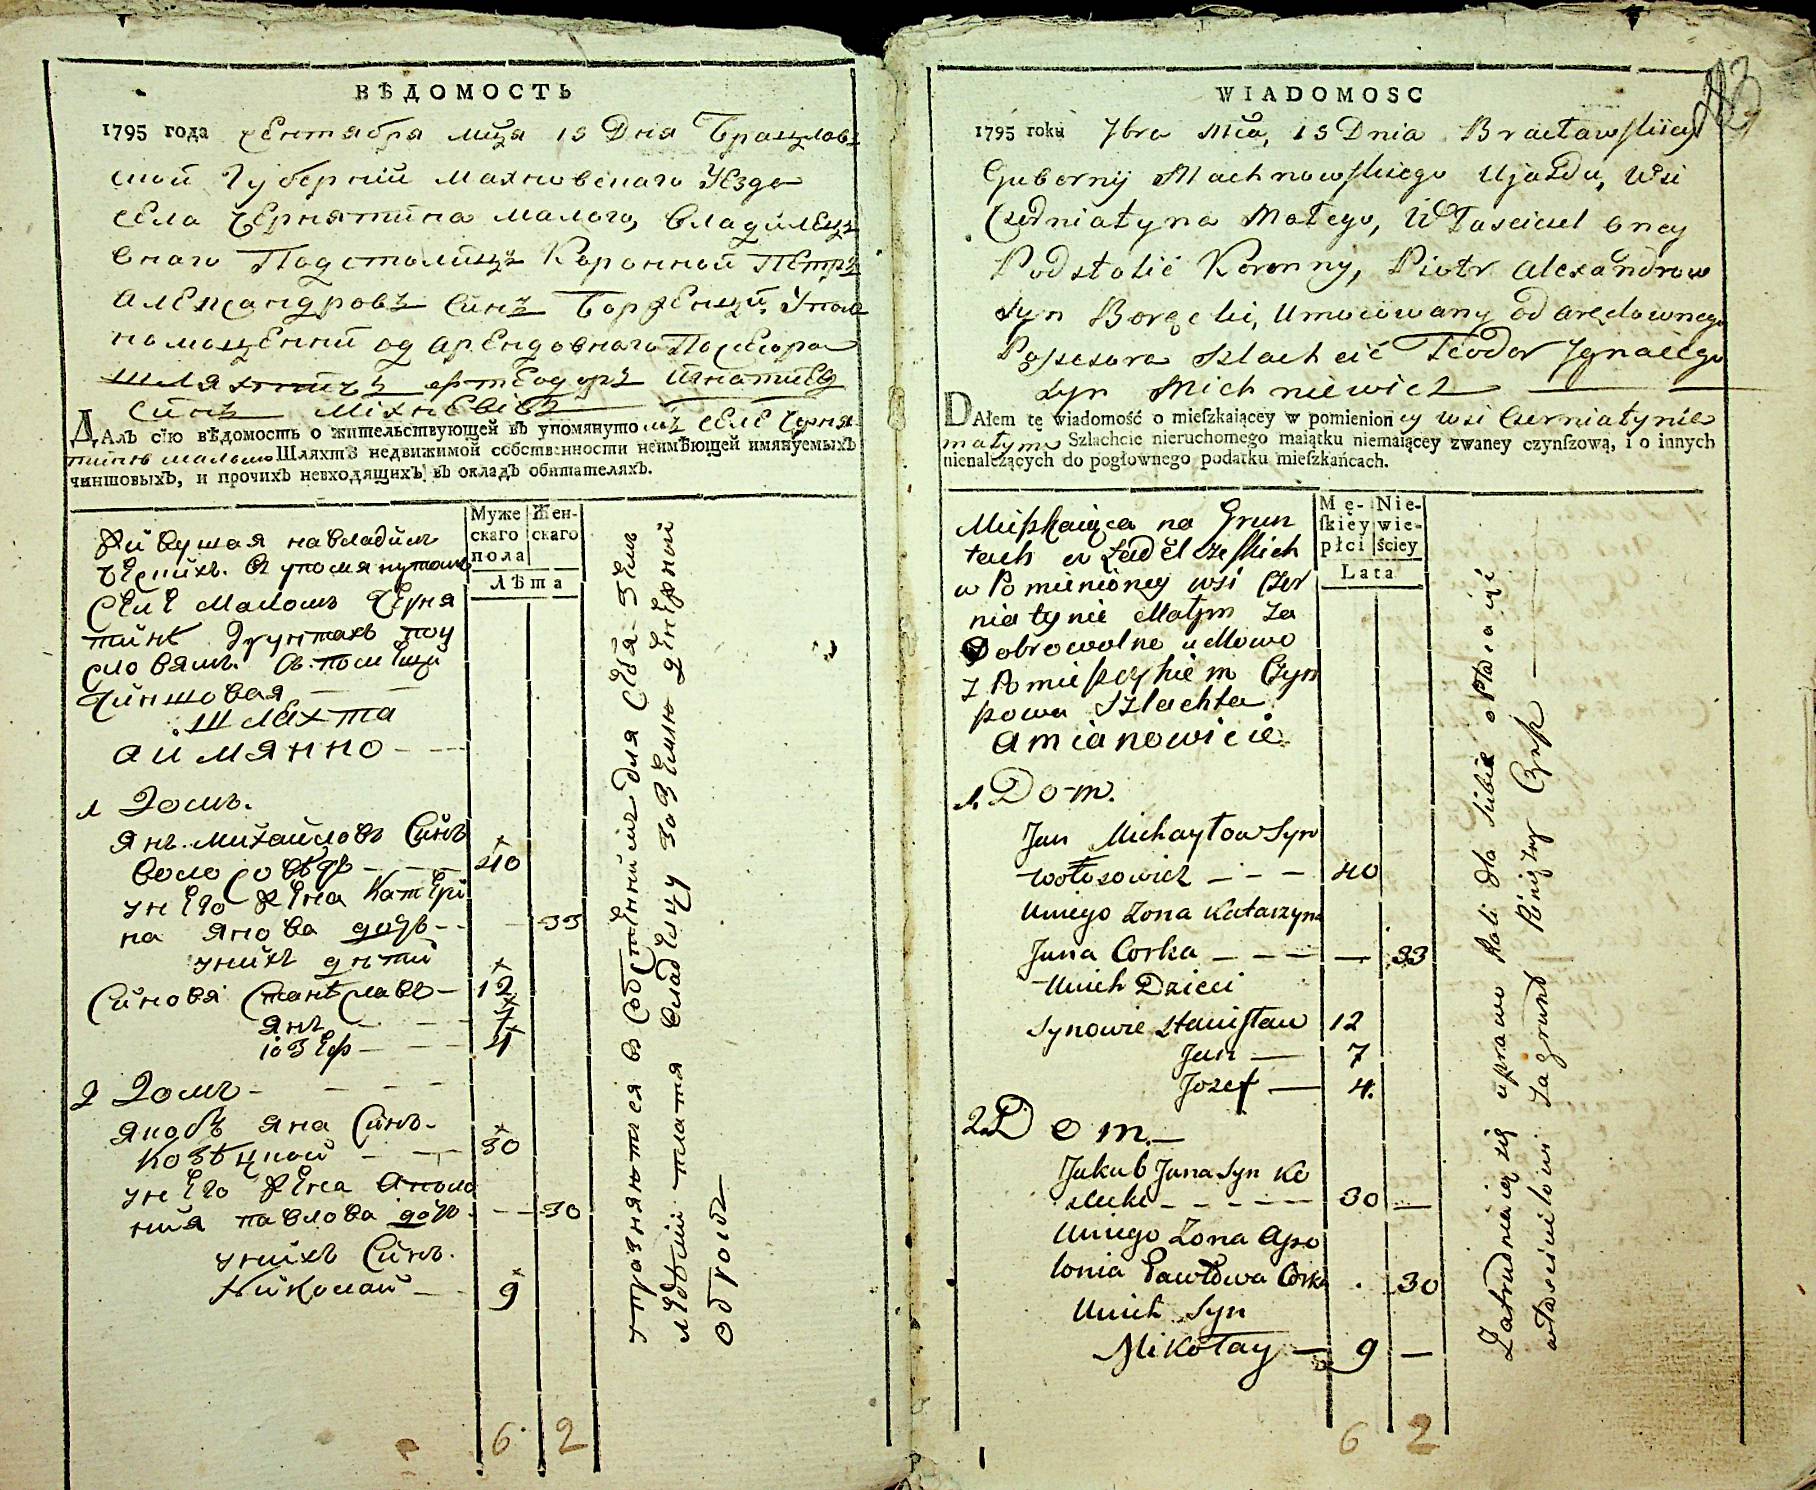 ВѢДОМОСТЬ
1795 года сентября мца 15 Дня Брацлав
ской Губерній Махновскаго Уезда
села Чернятина Малого, владилецъ
оного Подстолицъ Коронной Петръ
Александровъ Синъ Боренцкій, Упол
номоценній од арендовного Посесора
шляхтичъ Теодоръ Игнатиевъ
Синъ Міхневичъ
ДАлъ сію вѣдомость о жительствующей въ упомянутомъ селе Черня
тине малом Шляхтѣ недвижимой собственности неимѣющей имянуемыхъ
чиншовыхъ, и прочихъ невходящихъ въ окладъ обитателяхъ.
Муже
скаго
пола
Жен-
скаго
Лѣта
Живущая на владил
ческихъ. в упомянутомъ
Селе Маломъ Черня
тинѣ грунтахъ поу
словямъ. съ помещи
Чиншовая
шляхта
а имянно
1 Домъ.
Янъ Михайловъ Синъ
Волосовичъ 40
у него жена Катери
на Янова дочь 33
у нихъ дѣтей
Синовя Станиславъ 12
Янъ 7
іозеф 4
2 Домъ
Якобъ Яна Синъ
Козѣцкой 30
у него жена Аполо
нія павлова дочь 30
у нихъ Синъ
Николай 9
упражняются в Собственнимъ для Себя Земледѣліи плата владелцу за Землю денежной
оброкъ
6 2
WIADOMOSC
1795 roku 7bra Mca, 15 Dnia Bracławskiiey
Gubernij Machnowskiego Ujazdu, Wsi
Czerniatyna Małego, Własciciel oney
Podstolić Koronny, Piotr Alexandrow
syn Boręcki, Umocowany od arędownego
Possesora szlachcić Teodor Jgnacego
syn Michniewicz
DAłem tę wiadomość o mieſzkaiącey w pomienioney wsi Czerniatynie
małym Szlachcie nieruchomego maiątku niemaiącey zwaney czynſzową, i o innych
nienależących do pogłownego podatku mieſzkańcach.
Mę-
ſkiey
płci
Nie-
wie-
ściey
Lata
Mieszkaiąca na Grun
tach
w Pomienioney wsi Czer
niatynie Małym za
Dobrowolne umowo
z Pomieszczykiem Czyn
szowa Szlachta
amianowicie
1. Dom.
Jan Michayłow Syn
Wołosowicz 40
Uniego Zona Katarzyna
Jana Corka 33
Unich Dzieci
Synowie Stanisław 12
Jan 7
Jozef 4.
2. Dom.
Jakub Jana Syn Ko
zlecki 30
Uniego Zona Apo
lonia Pawłowa Corka 30
Unich Syn
Mikołay 9
Zatrudniaią się uprawo Roli dla siebie opłacaiąć
własćicielowi za grunt Pinięzny Czynsz
6 2